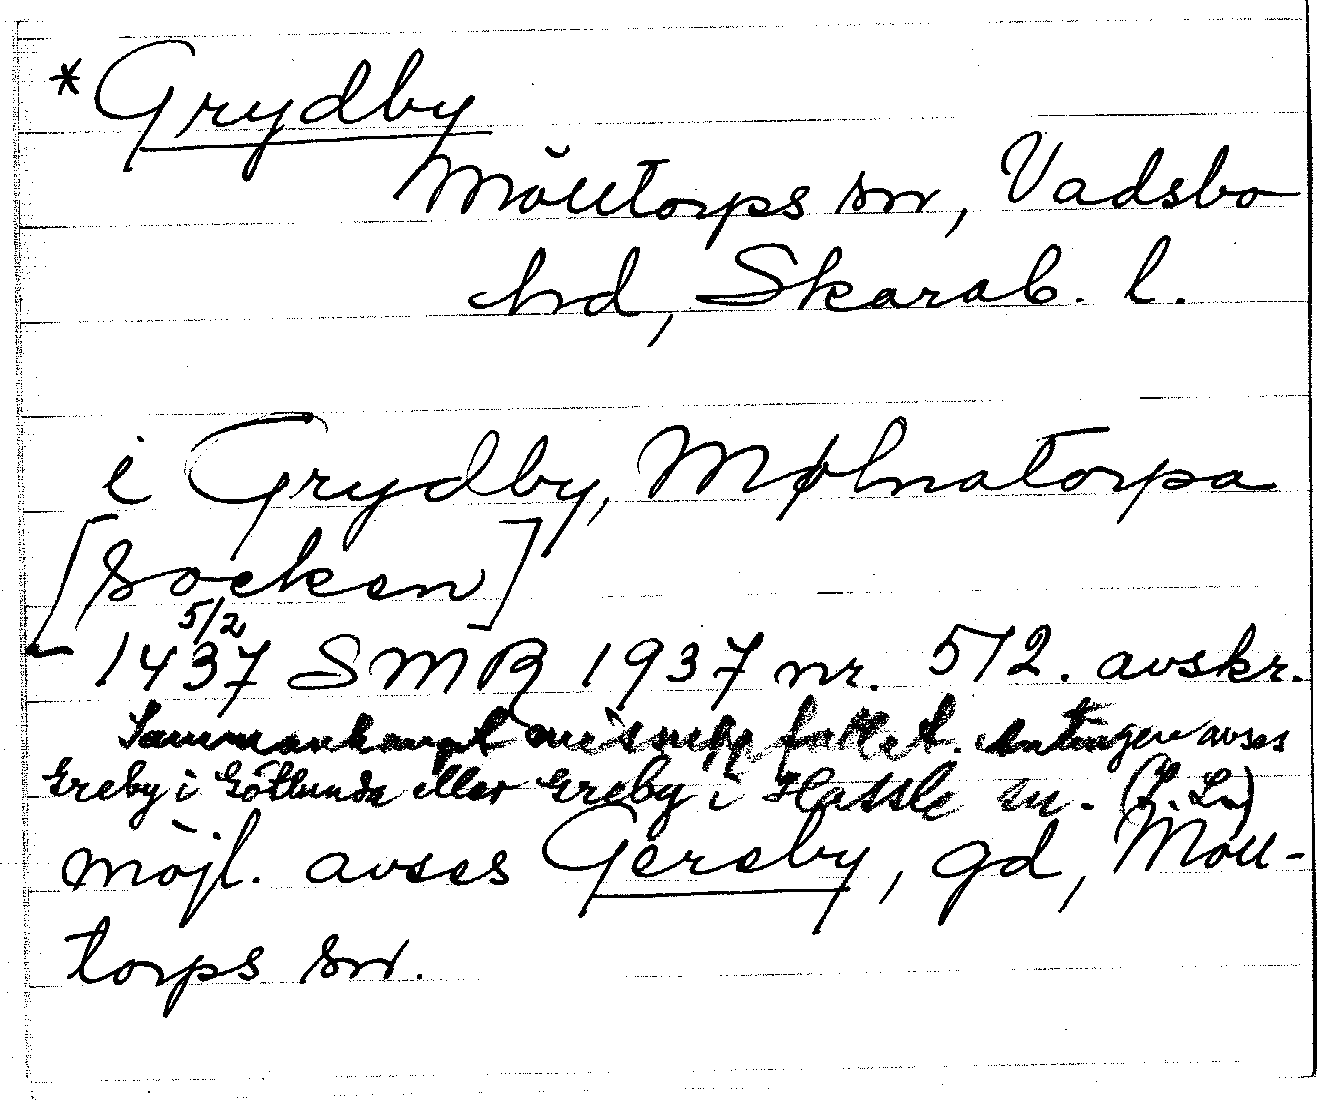 *Grydby
Mölltorps sn, Vadsbo
hd, Skarab. l.
i Grydby, Mølnatorpa
[socken]
5/2
1437 SMR 1937 nr. 572. avskr.
Sammanhanget missuppfattat. Antingen avses
Greby i Götlunda eller Greby i Hassle sn. (I. Ln)
möjl. avses Gereby, gd, Möll-
torps sn.